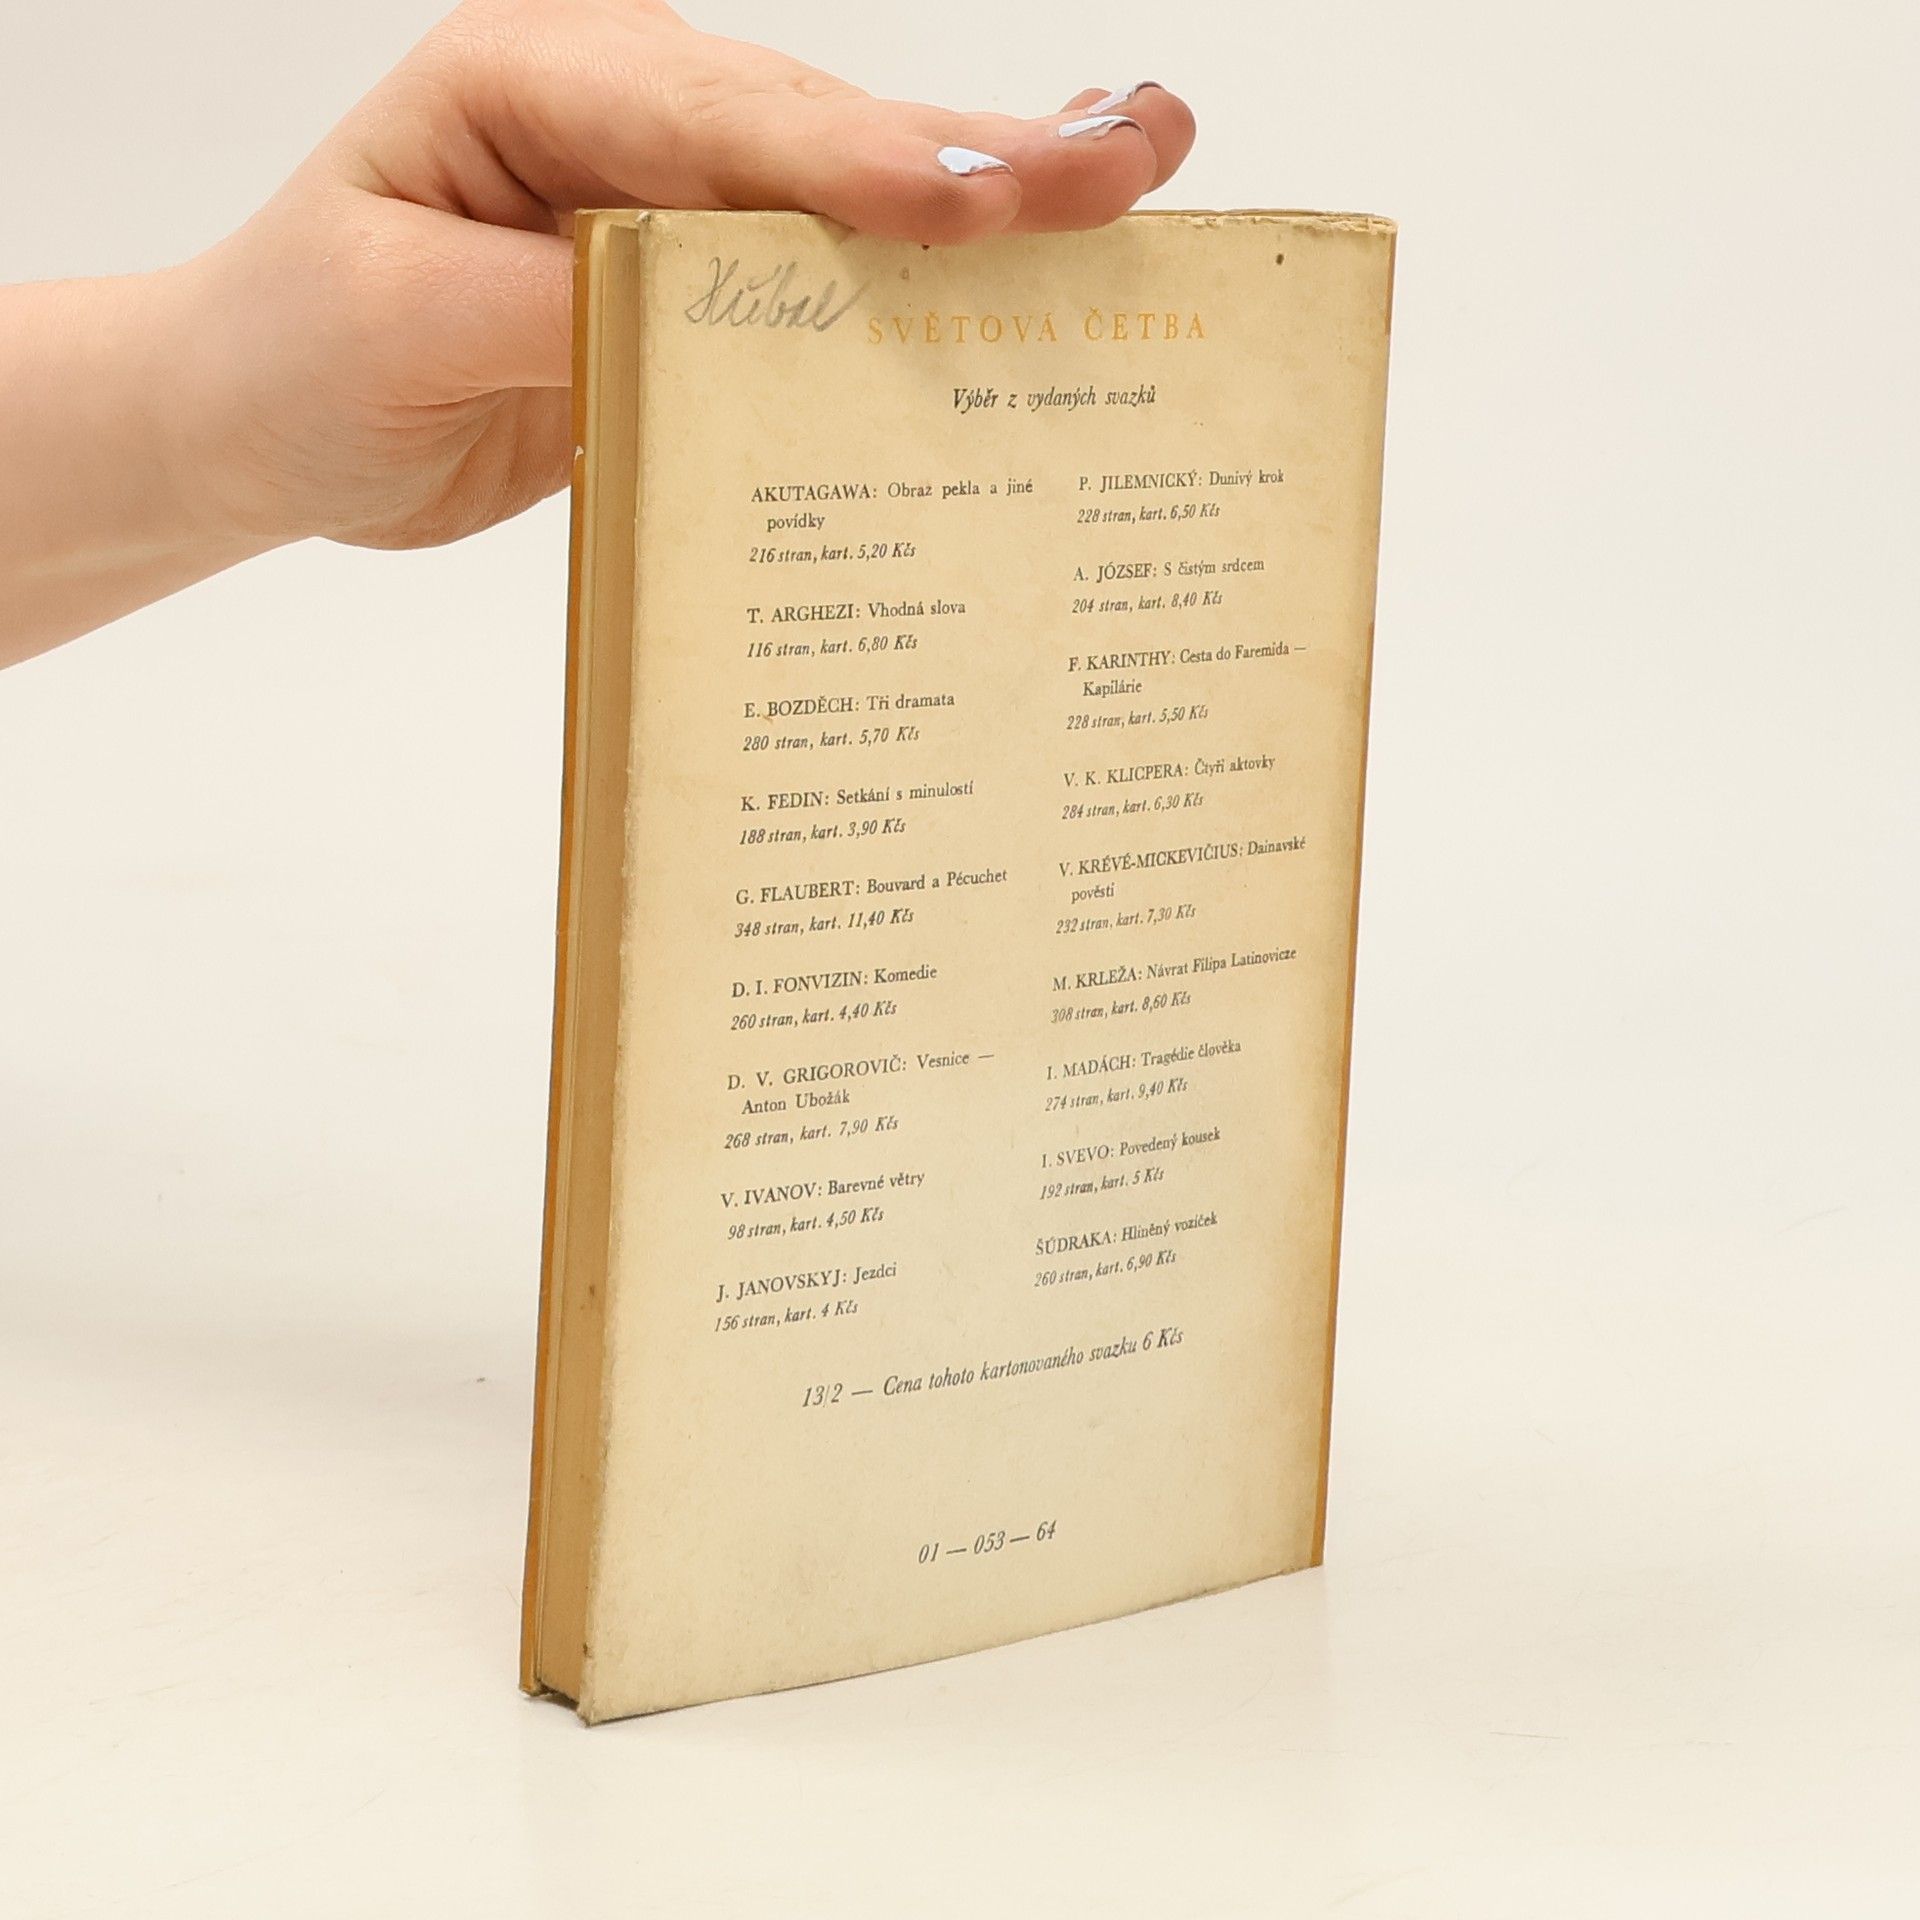 SVĚTOVÁ ČETBA
Výběr z vydaných svazků
AKUTAGAWA: Obraz pekla a jiné
povídky
216 stran, kart. 5,20 Kčs
T. ARGHEZI: Vhodná slova
116 stran, kart. 6,80 Kčs
E. BOZDĚCH: Tři dramata
280 stran, kart. 5,70 Kčs
K. FEDIN: Setkání s minulostí
188 stran, kart. 3,90 Kčs
G. FLAUBERT: Bouvard a Pécuchet
348 stran, kart. 11,40 Kčs
D. I. FONVIZIN: Komedie
260 stran, kart. 4,40 Kčs
D. V. GRIGOROVIČ: Vesnice —
Anton Ubožák
268 stran, kart. 7,90 Kčs
V. IVANOV: Barevné větry
98 stran, kart. 4,50 Kčs
J. JANOVSKYJ: Jezdci
156 stran, kart. 4 Kčs
P. JILEMNICKÝ: Dunivý krok
228 stran, kart. 6,50 Kčs
A. JÓZSEF: S čistým srdcem
204 stran, kart. 8,40 Kčs
F. KARINTHY: Cesta do Faremida —
Kapilárie
228 stran, kart. 5,50 Kčs
V. K. KLICPERA: Čtyři aktovky
284 stran, kart. 6,30 Kčs
V. KRÉVÉ-MICKEVIČIUS: Dainavské
pověsti
232 stran, kart. 7,30 Kčs
M. KRLEŽA: Návrat Filipa Latinovicze
308 stran, kart. 8,60 Kčs
I. MADÁCH: Tragédie člověka
274 stran, kart. 9,40 Kčs
I. SVEVO: Povedený kousek
192 stran, kart. 5 Kčs
ŠÚDRAKA: Hliněný vozíček
260 stran, kart. 6,90 Kčs
13/2 — Cena tohoto kartonovaného svazku 6 Kčs
01 — 053 — 64